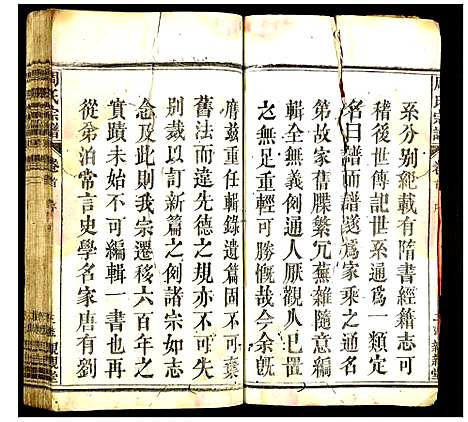 系分别紀載有隋書經籍志可
稽後世傳記世系通爲一類定
名曰譜而譜遂爲家乗之通例
第故家舊牒繁冗蕪雜隨意編
輯全無義例通人厭觀人人巨製
可無慨哉今余旣
膺兹重任輯録遺篇固不可棄
舊法而違先德之規亦不可失
别裁以訂新篇之例諸宗如志
念及此我宗遷移六百年之
實蹟未始不可編輯一書也再
從弟泊常言史學名家唐有劉
周氏宗譜
卷首
序